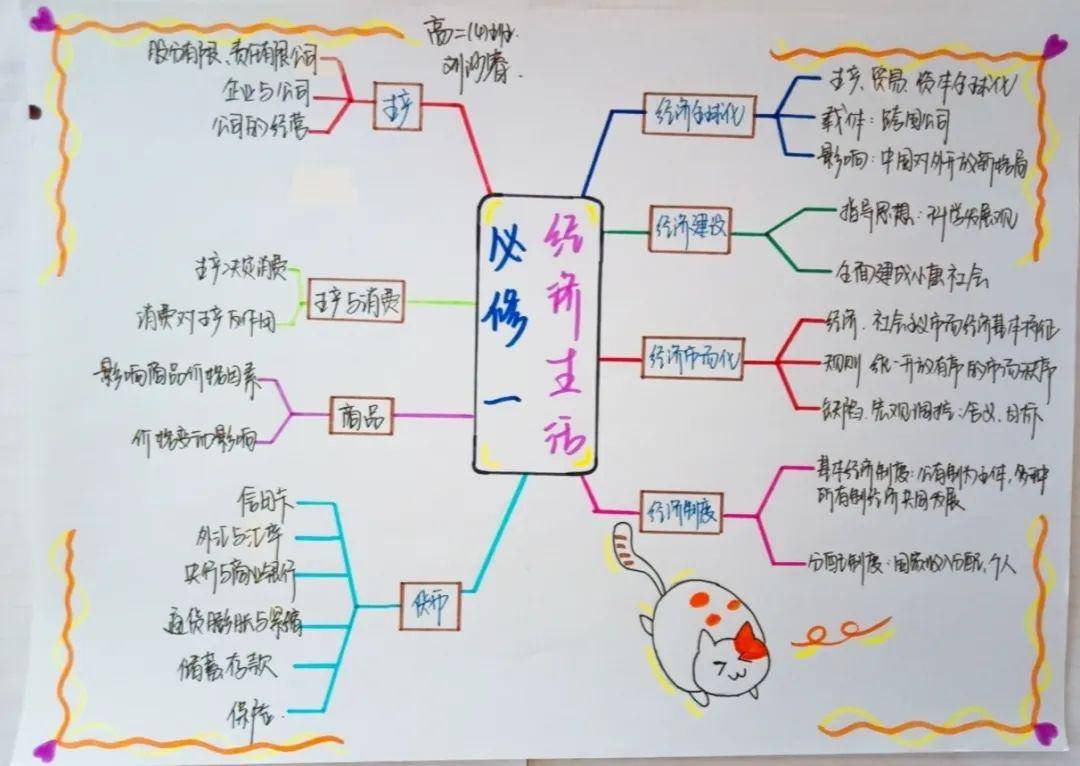 高二(4)班
必修一
经济生活
生产
股份有限、责任有限公司
企业与公司
公司的经营
生产与消费
生产决定消费
消费对生产反作用
商品
影响商品价格因素
价格变动影响
货币
信用卡
外汇与汇率
央行与商业银行
通货膨胀与紧缩
储蓄存款
保险
经济全球化
生产、贸易、资本全球化
载体：跨国公司
影响：中国对外开放新格局
经济建设
指导思想：科学发展观
全面建成小康社会
经济市场化
经济、社会主义市场经济基本特征
规则 统一开放有序的市场秩序
缺陷、宏观调控：含义、目标
经济制度
基本经济制度：公有制为主体，多种
所有制经济共同发展
分配制度：国家收入分配、个人